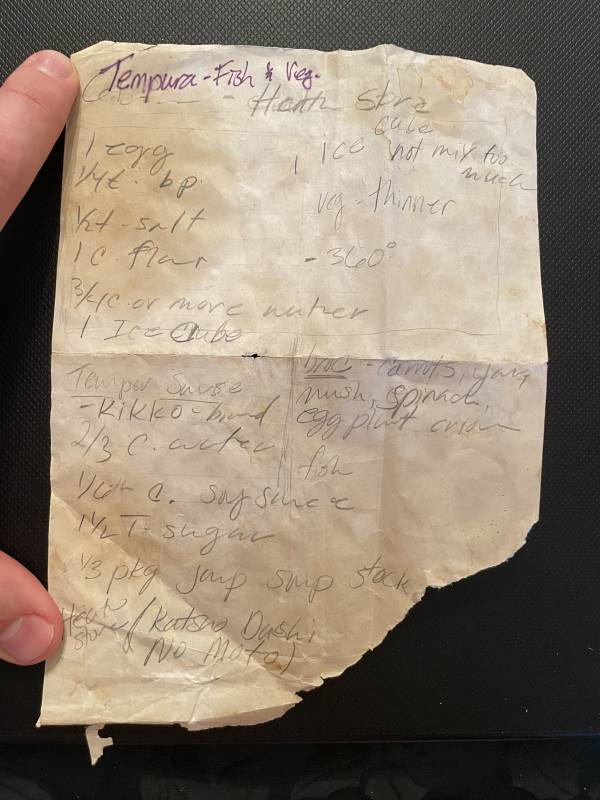 Tempura - Fish & Veg.
- Health Store
1 egg
1/4 t. bp
1/2 t - salt
1 C. flour
3/4 C. or more water
1 Ice Cube
cube
1 ICE not mix too
much
veg - thinner
- 360°
Tempur Sause
- KiKKO - brand
2/3 C. water
1/6th C. soy sauce
1 1/2 T - sugar
1/3 pkg Jap soup stock
Health
Store
(Katsuo Dashi
No Moto)
- carrots, yams
mush, spinach,
eggplant onion
fish